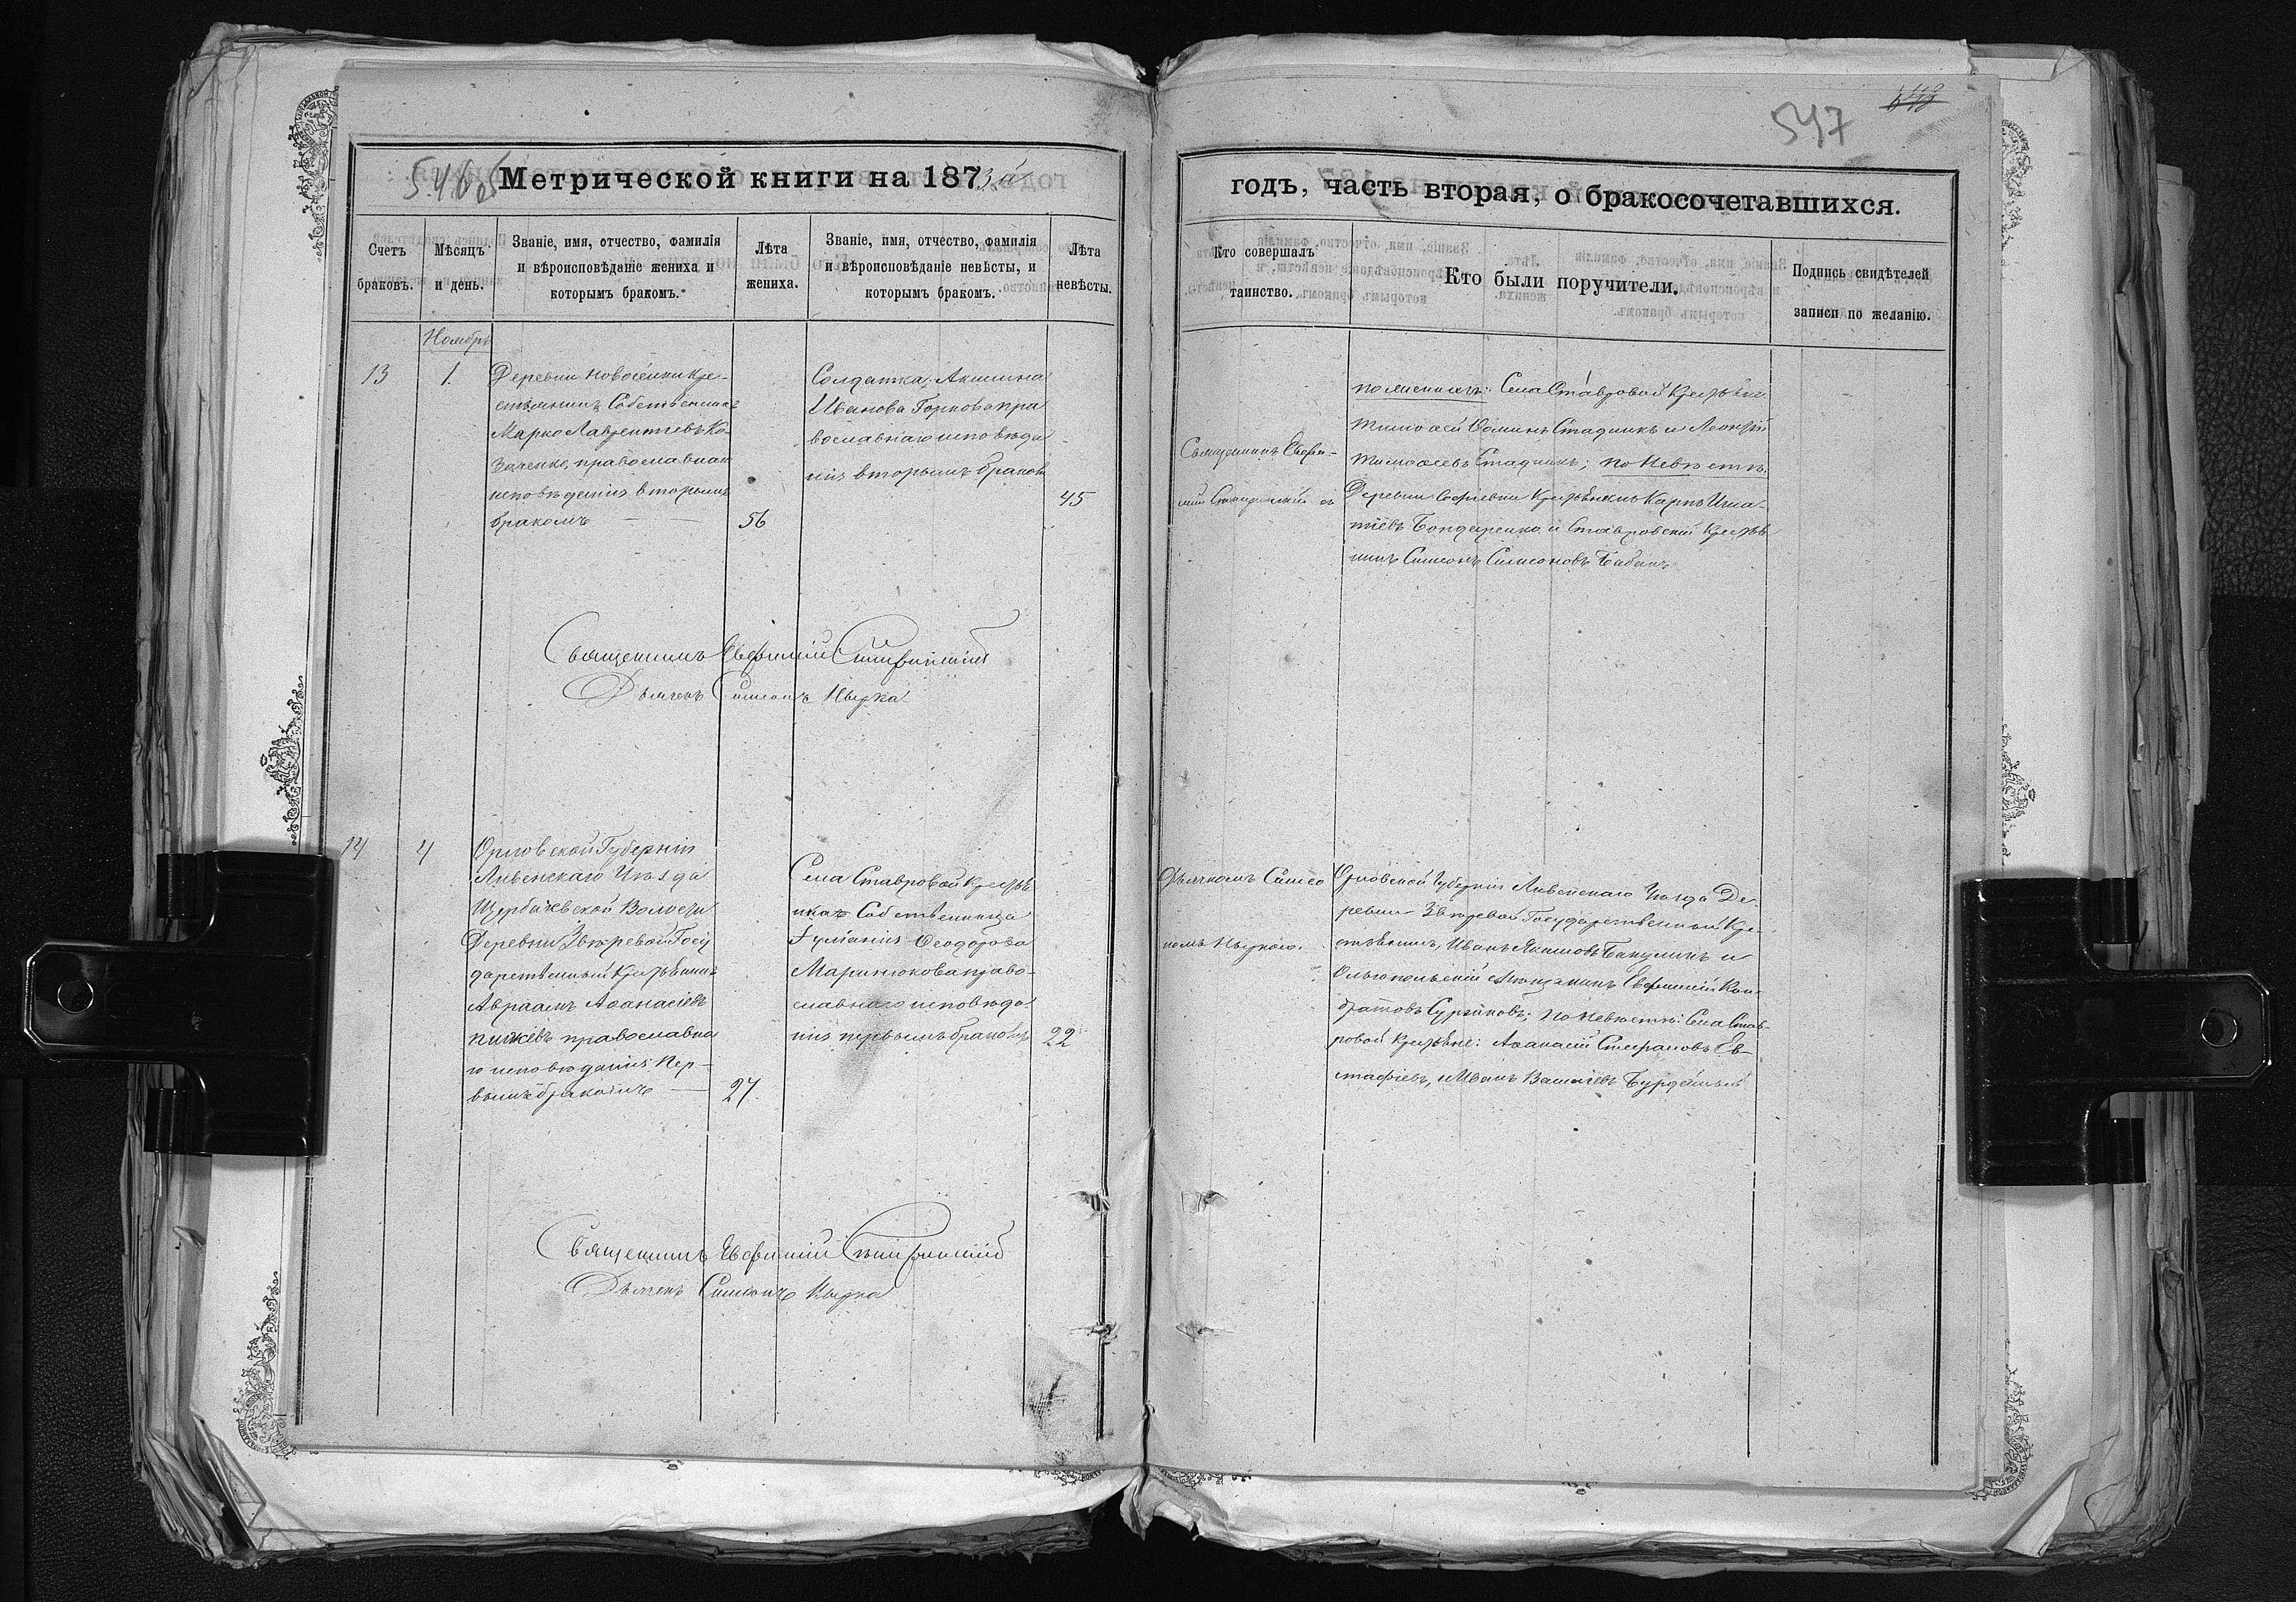 547
546 об
Метрической книги на 1873й
годъ, часть вторая, о бракосочетавшихся.
Счетъ браковъ.
Мѣсяцъ и день.
Званіе, имя, отчество, фамилія
и вѣроисповѣданіе жениха и
которымъ бракомъ.
Лѣта
жениха.
Званіе, имя, отчество, фамилія
и вѣроисповѣданіе невѣсты, и
которымъ бракомъ.
Лѣта
невѣсты.
Кто совершалъ
таинство.
Кто были поручители.
Подпись свидѣтелей
записи по желанію.
Ноябрь
13
1.
Деревни Новосёлки Кре-
стьянинъ Собственникъ
Марко Лаврентіевъ Ко-
заченко, православнаго
исповѣданія вторымъ
бракомъ
56
Солдатка: Акилина
Иванова Горкова пра
вославнаго исповѣда
нія вторымъ бракомъ
45
Священникъ Евфи-
мій
по женихѣ: Села Ставровой Крестьяне
Тимофей Фоминъ Стадникъ и Леонтій
Тимофеевъ Стадникъ; по невѣстѣ:
Деревни Софіевки Крестьянинъ Карпъ Игна-
тіевъ Бондаренко и Ставровскій Крестья
нинъ Симеонъ Симеоновъ Бабакъ
Священникъ Евфимій
Дьячекъ Симеонъ Кырка
14
4
Орловской Губерніи
Ливенскаго Уѣзда
Щербачевской Волости
Деревни Звѣревой Госу
дарственный Крестьянинъ
Авраамъ Афанасіевъ
православна
го исповѣданія пер-
вымъ бракомъ
27.
Села Ставровой Крестья
нка Собственница
Іуліанія Феодорова
Маринюкова право-
славнаго исповѣда
нія первымъ бракомъ
22
Дьячкомъ Симео
номъ Кыркою.
Орловской Губерніи Ливенскаго Уѣзда Де-
ревни Звѣревой Государственный Кре-
стьянинъ, Иванъ Якимовъ Бакулинъ и
Ольгопольскій Мѣщанинъ Евфимій Кон-
дратовъ Суриковъ; по невѣстѣ: Села Став-
ровой Крестьяне: Афанасій Стефановъ Ев-
стафіевъ, и Иванъ Василіевъ Бурдейный
Священникъ Евфимій
Дьячекъ Симеонъ Кырка